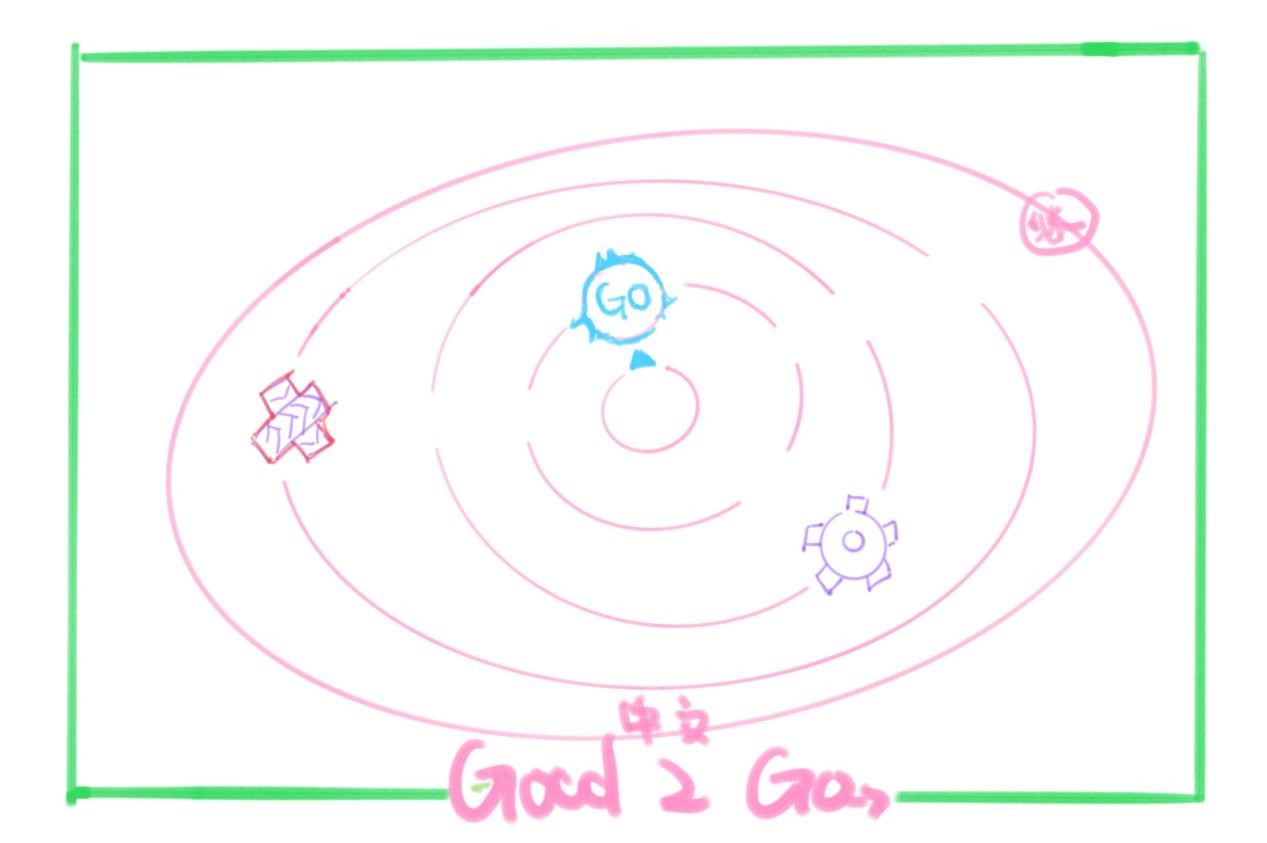 GO
中文
Good 2 Go,